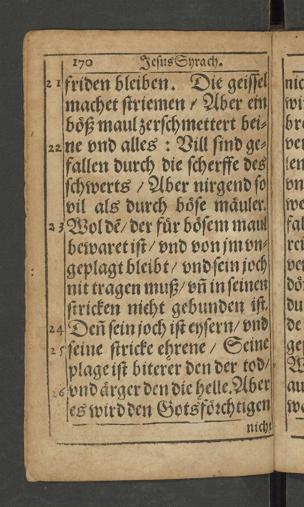 170 Jesus Syrach.
21 friden bleiben. Die geissel
machet striemen / Aber ein
böß maul zerschmettert bei-
22 ne vnd alles : Vill sind ge-
fallen durch die scherffe des
schwerts / Aber nirgend so
vil als durch böse mäuler.
23 Wol dē / der für bösem maul
bewaret ist / vnd von jm vn-
geplagt bleibt / vnd sein joch
nit tragen muß / vñ in seinen
stricken nicht gebunden ist.
24 Deñ sein joch ist eysern / vnd
25 seine stricke ehrene / Seine
plage ist biterer den der tod /
26 vnd ärger den die helle. Aber
es wird den Gotsförchtigen
nicht